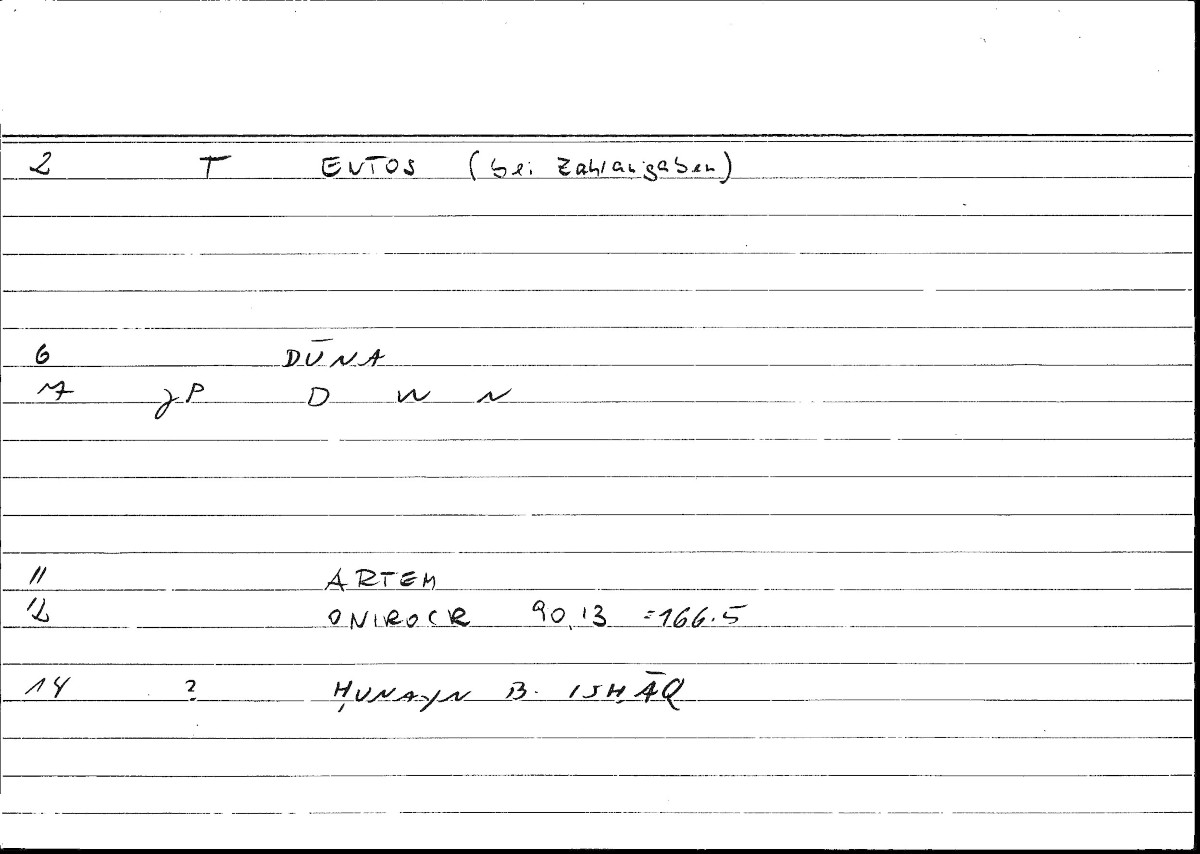 2 T ENTOS (bei Zahlangaben)
6 DŪNA
7 γP D W N
11 ARTEM
12 ONIROCR 90,13 =166.5
14 ? ḤUNAYN B. ISḤĀQ